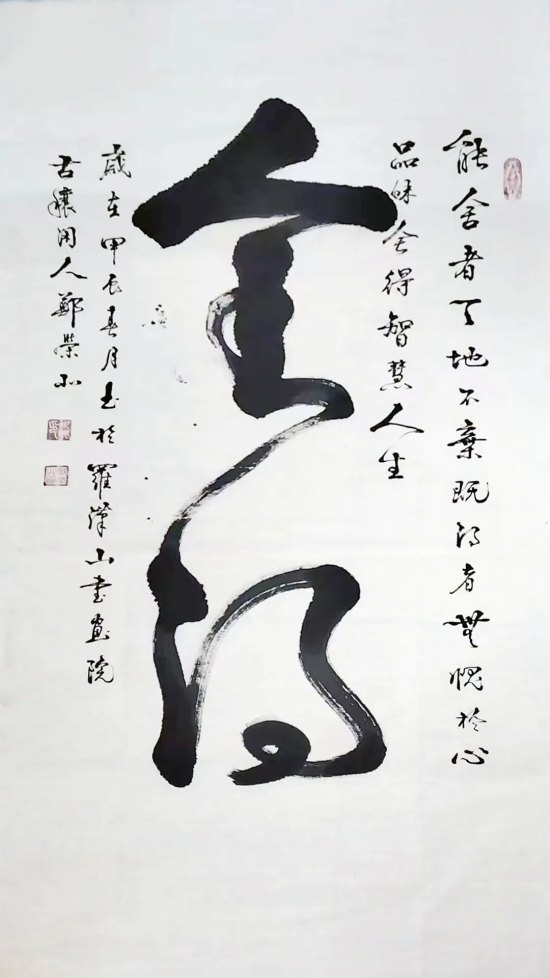 能舍者天地不棄既得者無愧於心
品味舍得智慧人生
舍得
歲在甲辰春月书於羅漢山書画院
古穰闲人鄭榮